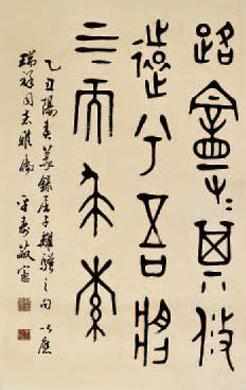 路曼=其修
遠兮吾將
上下而求索
乙丑陽春篆錄屈子離騷之句以應
瑞祥同志雅屬 平壽